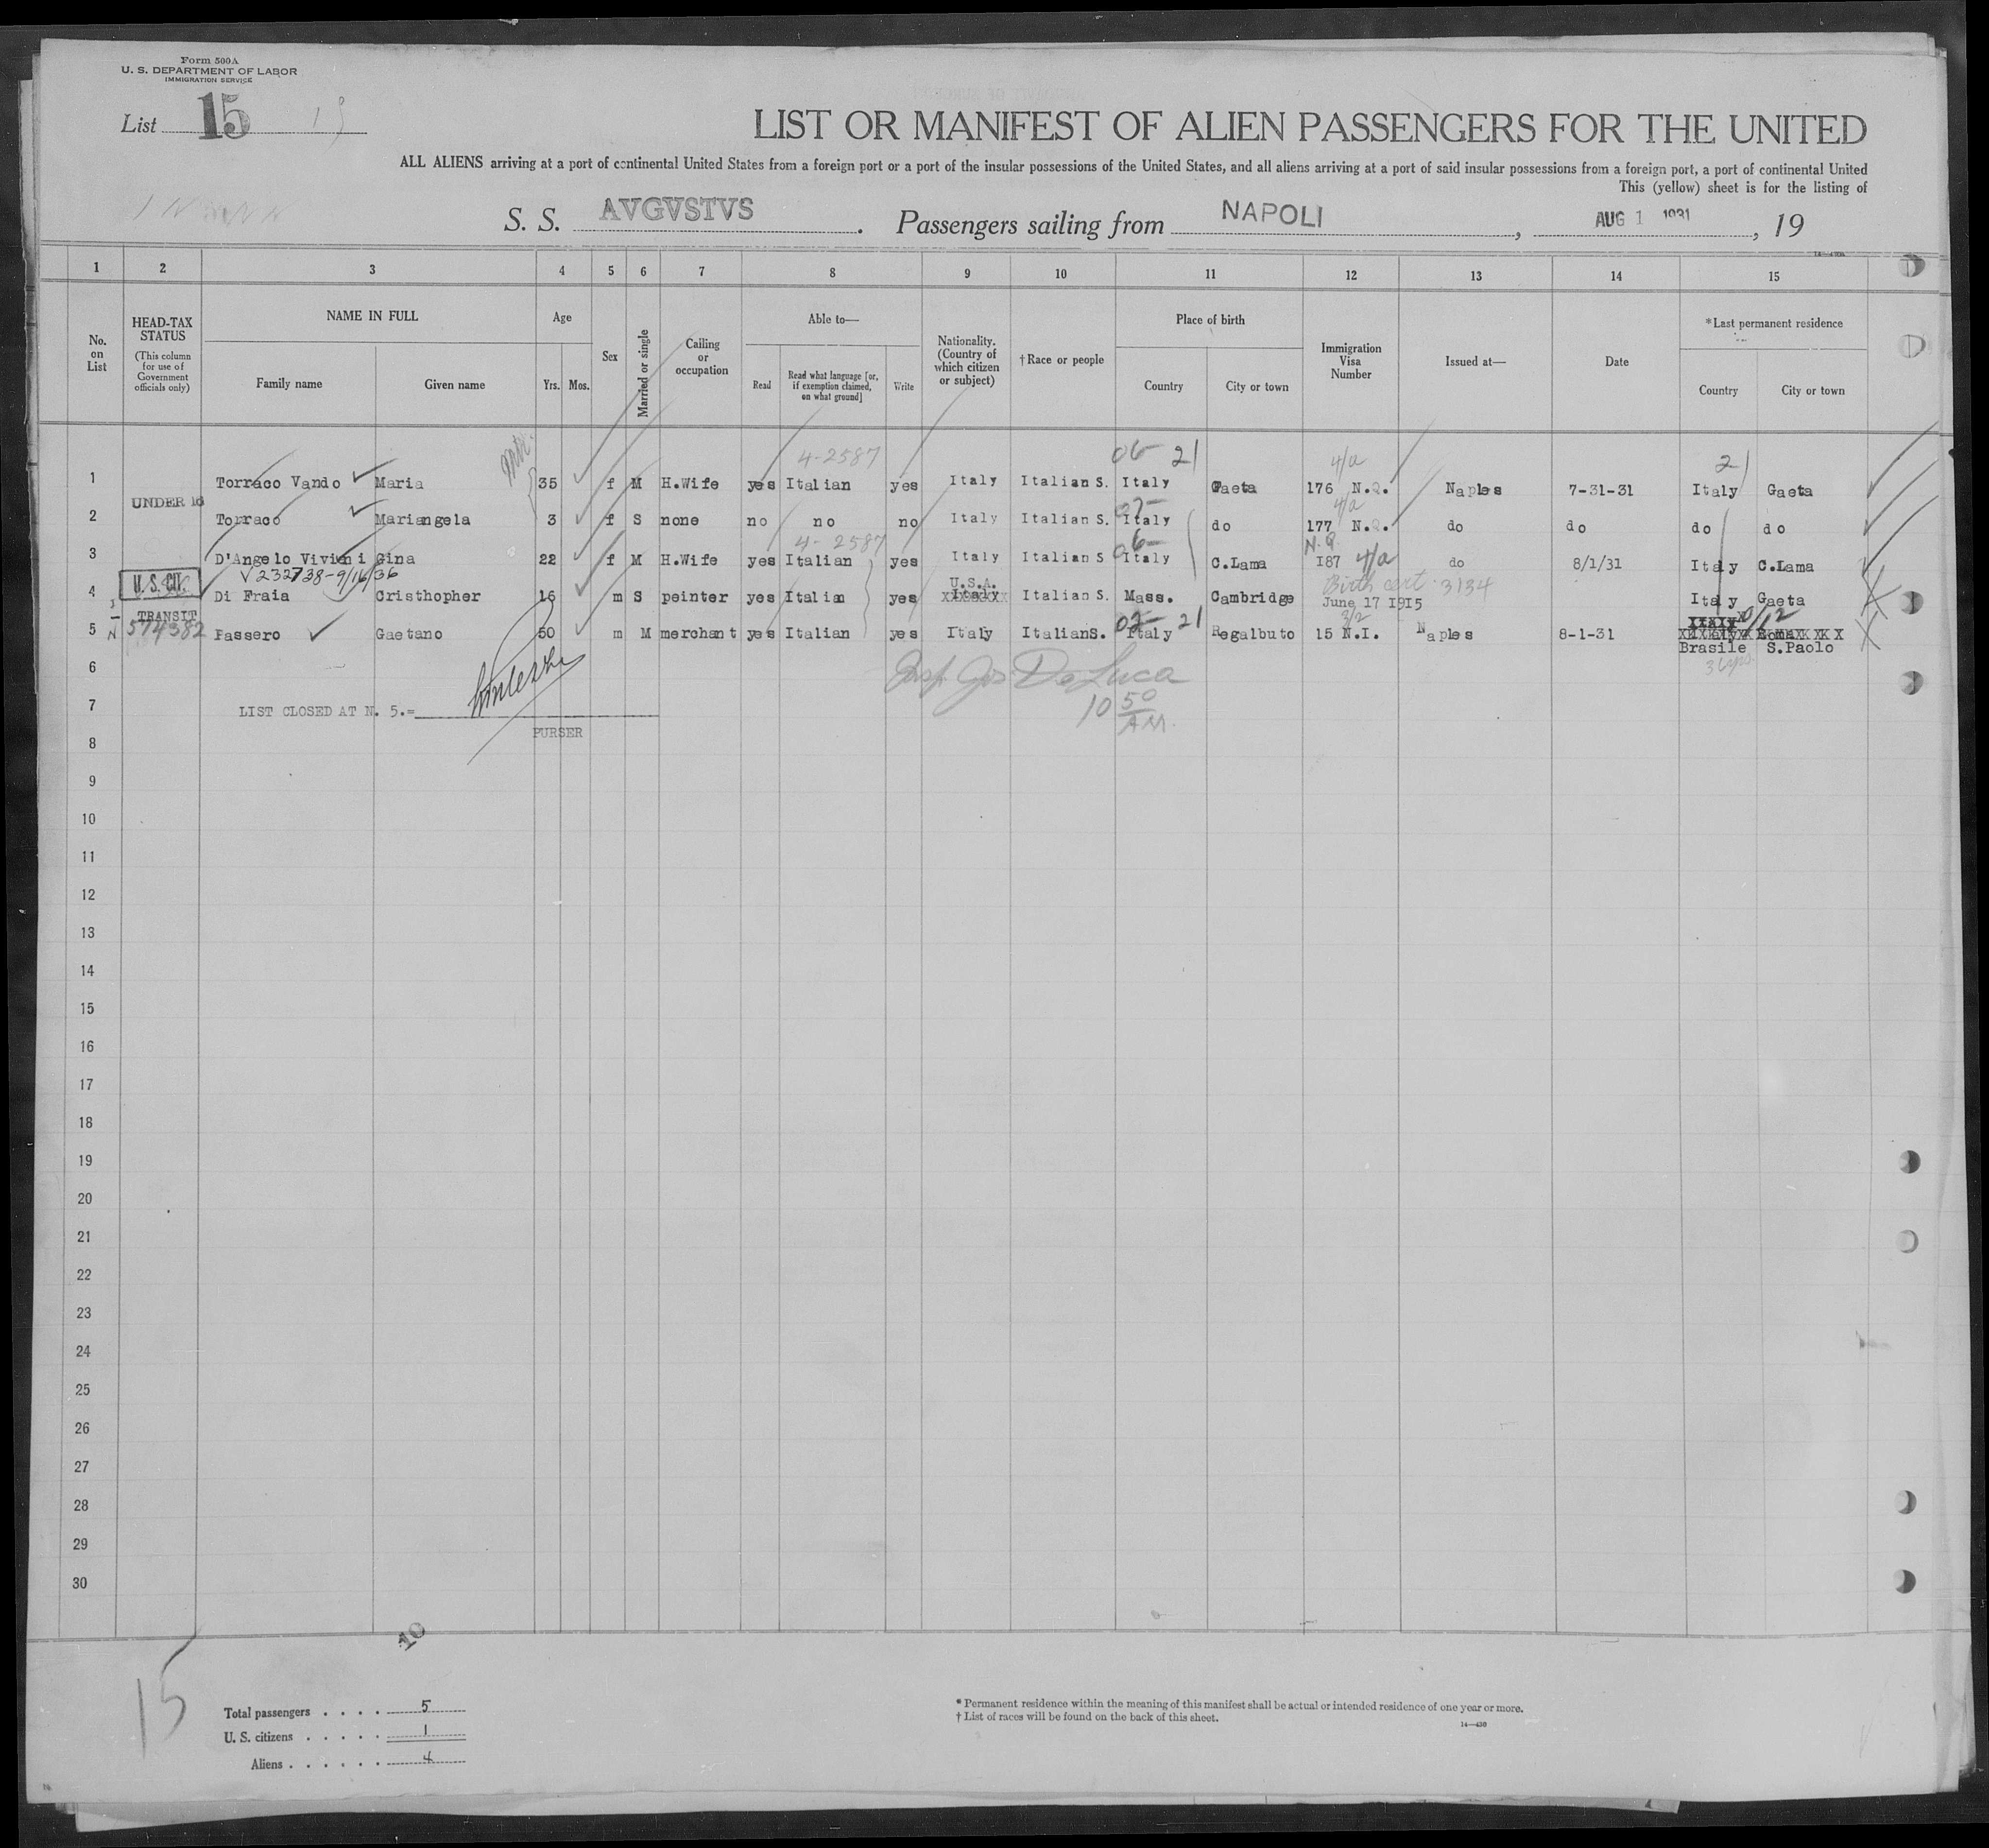 Form 500A
U. S. DEPARTMENT OF LABOR
IMMIGRATION SERVICE
List 15
LIST OR MANIFEST OF ALIEN PASSENGERS FOR THE UNITED
ALL ALIENS arriving at a port of continental United States from a foreign port or a port of the insular possessions of the United States, and all aliens arriving at a port of said insular possessions from a foreign port, a port of continental United
This (yellow) sheet is for the listing of
S. S. AVGVSTVS. Passengers sailing from NAPOLI, AUG 1 1931, 19
1 2 3 4 5 6 7 8 9 10 11 12 13 14 15
No. on List
HEAD-TAX STATUS (This column for use of Government officials only)
NAME IN FULL
Family name Given name
Age
Yrs. Mos.
Sex
Married or single
Calling or occupation
Able to—
Read Read what language [or, if exemption claimed, on what ground] Write
Nationality. (Country of which citizen or subject)
†Race or people
Place of birth
Country City or town
Immigration Visa Number
Issued at—
Date
*Last permanent residence
Country City or town
4-2587 06 21 4/a 21
1 Torraco Vando Maria 35 f M H.Wife yes Italian yes Italy Italian S. Italy Gaeta 176 N.Q. Naples 7-31-31 Italy Gaeta
UNDER 16 4/a
2 Torraco Mariangela 3 f S none no no no Italy Italian S. Italy do 177 N.Q. do do do do
4-2587 06 N.Q.
3 D'Angelo Viviani Gina 22 f M H.Wife yes Italian yes Italy Italian S Italy C.Lama 187 4/a do 8/1/31 Italy C.Lama
232738-9/16/36 U.S.A. Birth cert. 3134
4 U.S. CIT. Di Fraia Cristhopher 16 m S peinter yes Italian yes Italy Italian S. Mass. Cambridge June 17 1915 Italy Gaeta
TRANSIT 02 21 3/2
5 574382 Passero Gaetano 50 m M merchant yes Italian yes Italy ItalianS. Italy Regalbuto 15 N.I. Naples 8-1-31
Brasile S.Paolo
6
Insp. Jos De Luca
7 LIST CLOSED AT N. 5.=
10 50 AM.
PURSER
8
9
10
11
12
13
14
15
16
17
18
19
20
21
22
23
24
25
26
27
28
29
30
10
15
Total passengers . . . . 5
U. S. citizens . . . . . 1
Aliens . . . . . . 4
* Permanent residence within the meaning of this manifest shall be actual or intended residence of one year or more.
† List of races will be found on the back of this sheet.
14—430